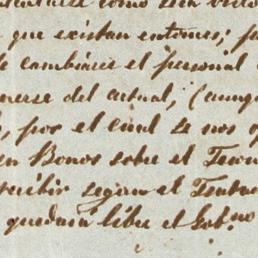 como será
que existan entonces;
cambiarse el personal
nerse del actual, (aunq
por el cual se nos
en Bonos sobre el Tesor
recibir segun el Tratad
quedaría libre el Gob.no